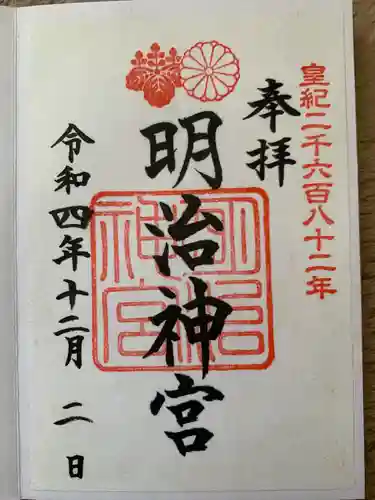 皇紀二千六百八十二年
奉拝
明治神宮
明治神宮
令和四年十二月二日